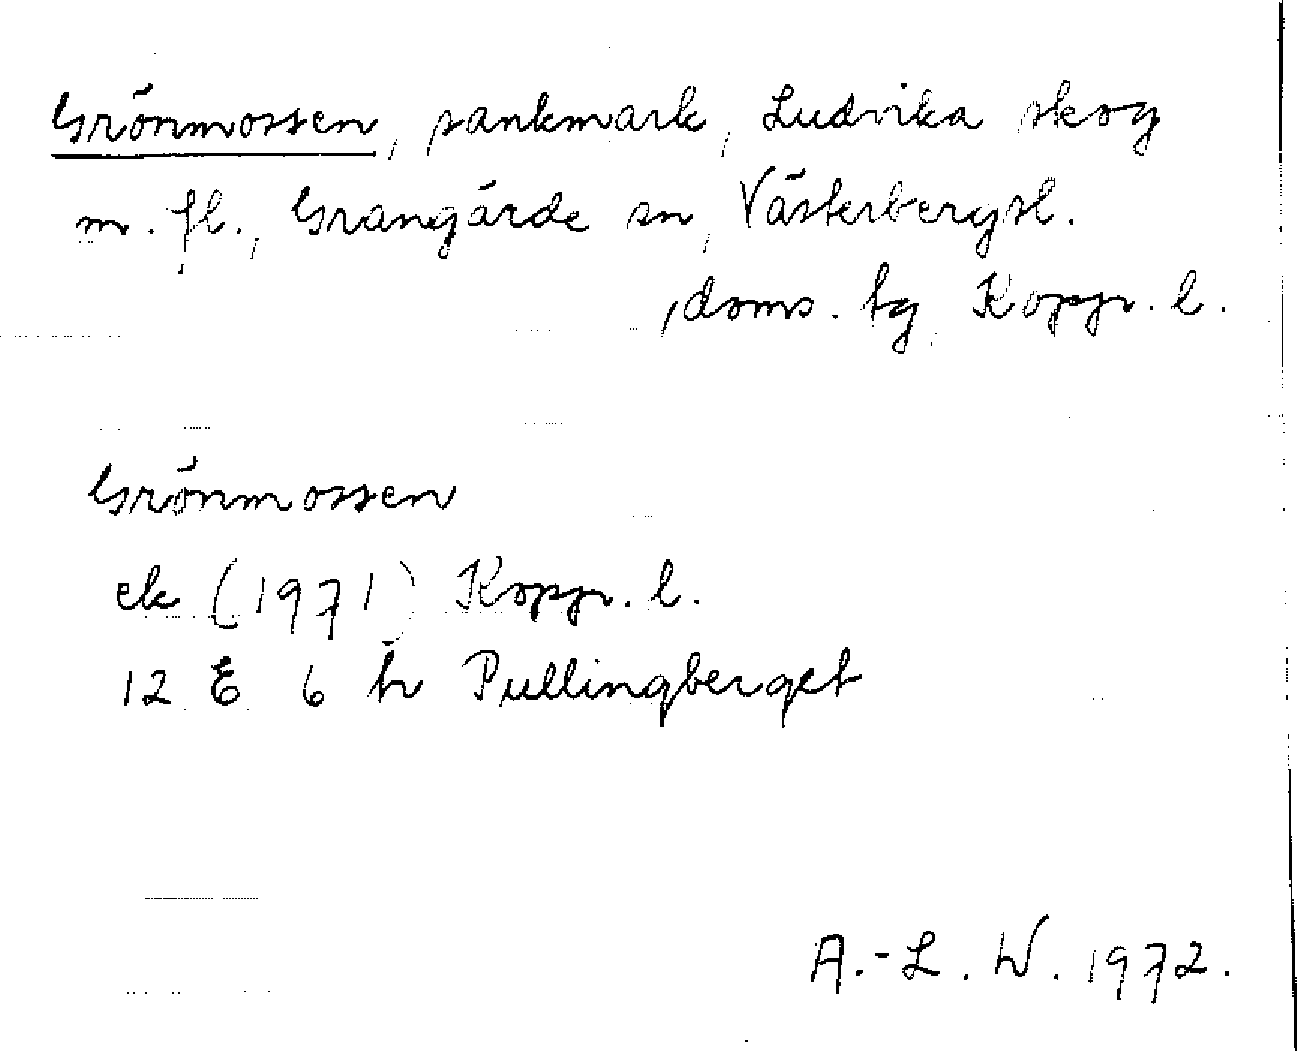 Grönmossen, sankmark, Ludvika skog
m. fl., Grangärde sn, Västerbergsl.
, doms. tg, Koppr. l.
Grönmossen
ek (1971) Koppr. l.
12 E 6 h Pullingberget
A.-L. W. 1972.